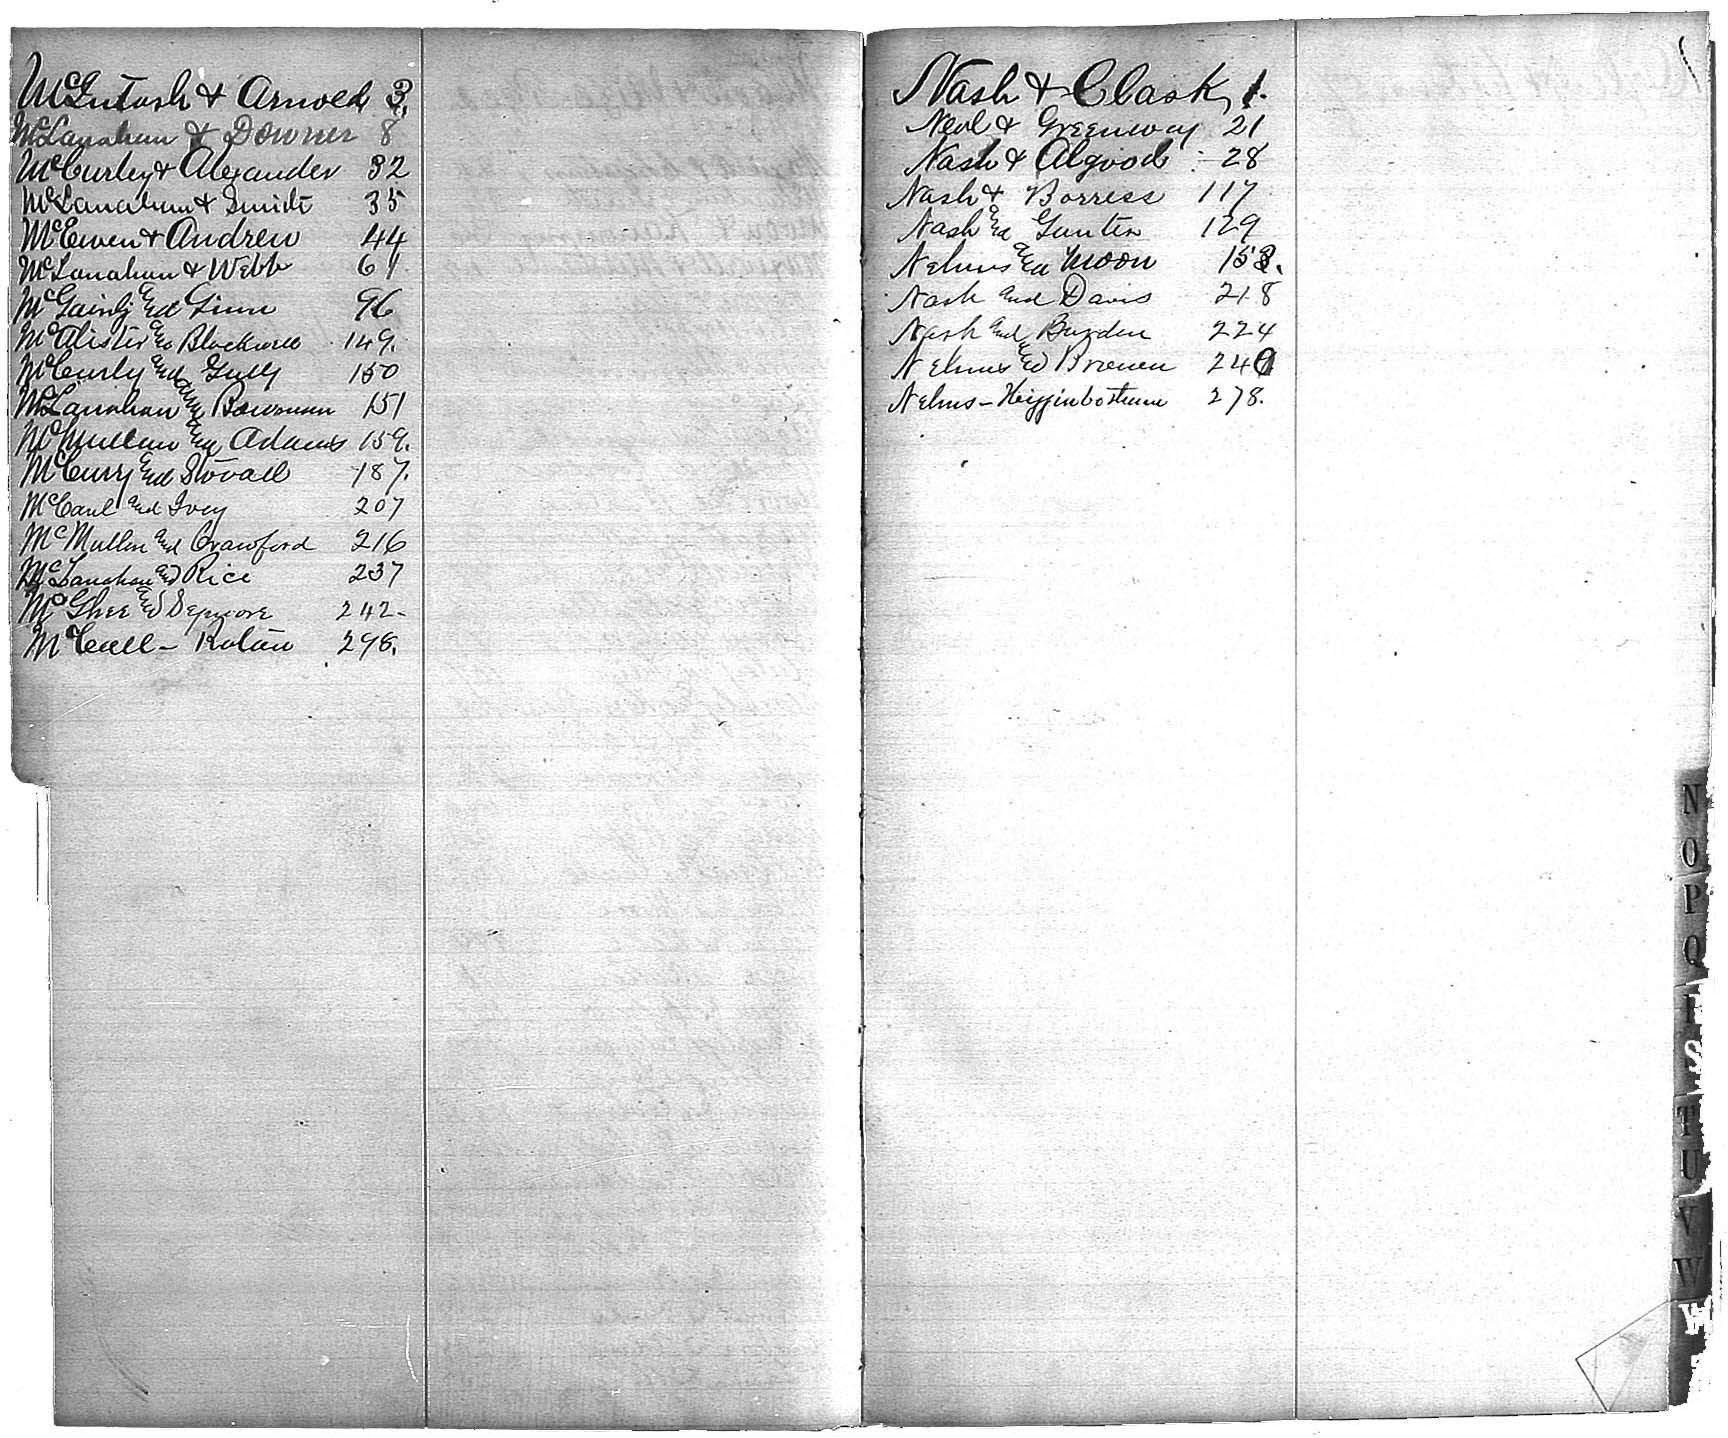 McIntosh & Arnold 3.
McLanahan & Downer 8
McCurley & Alexander 32
McLanahan & Smith 35
McEwen & Andrew 44
McLanahan & Webb 61
and Ginn 96
McAlister and Blackwell 149.
McCurly and Gully 150
McLanahan and Bowman 151
McMullan and Adams 159.
McCurry and Stovall 187.
and Ivey 207
McMullan and Crawford 216
McLanahan and Rice 237
McGhee and Sepmore 242-
McCall - 298.
Nash & Clark, 1.
Neal & Greenway 21
Nash & Algood 28
Nash & Borress 117
Nash and Gunter 129
Nelms and Moon 153.
Nash and Davis 218
Nash and Burden 224
Nelms and Brown 240
Nelms - Higginbotham 278.
N
O
P
Q
S
T
U
V
W